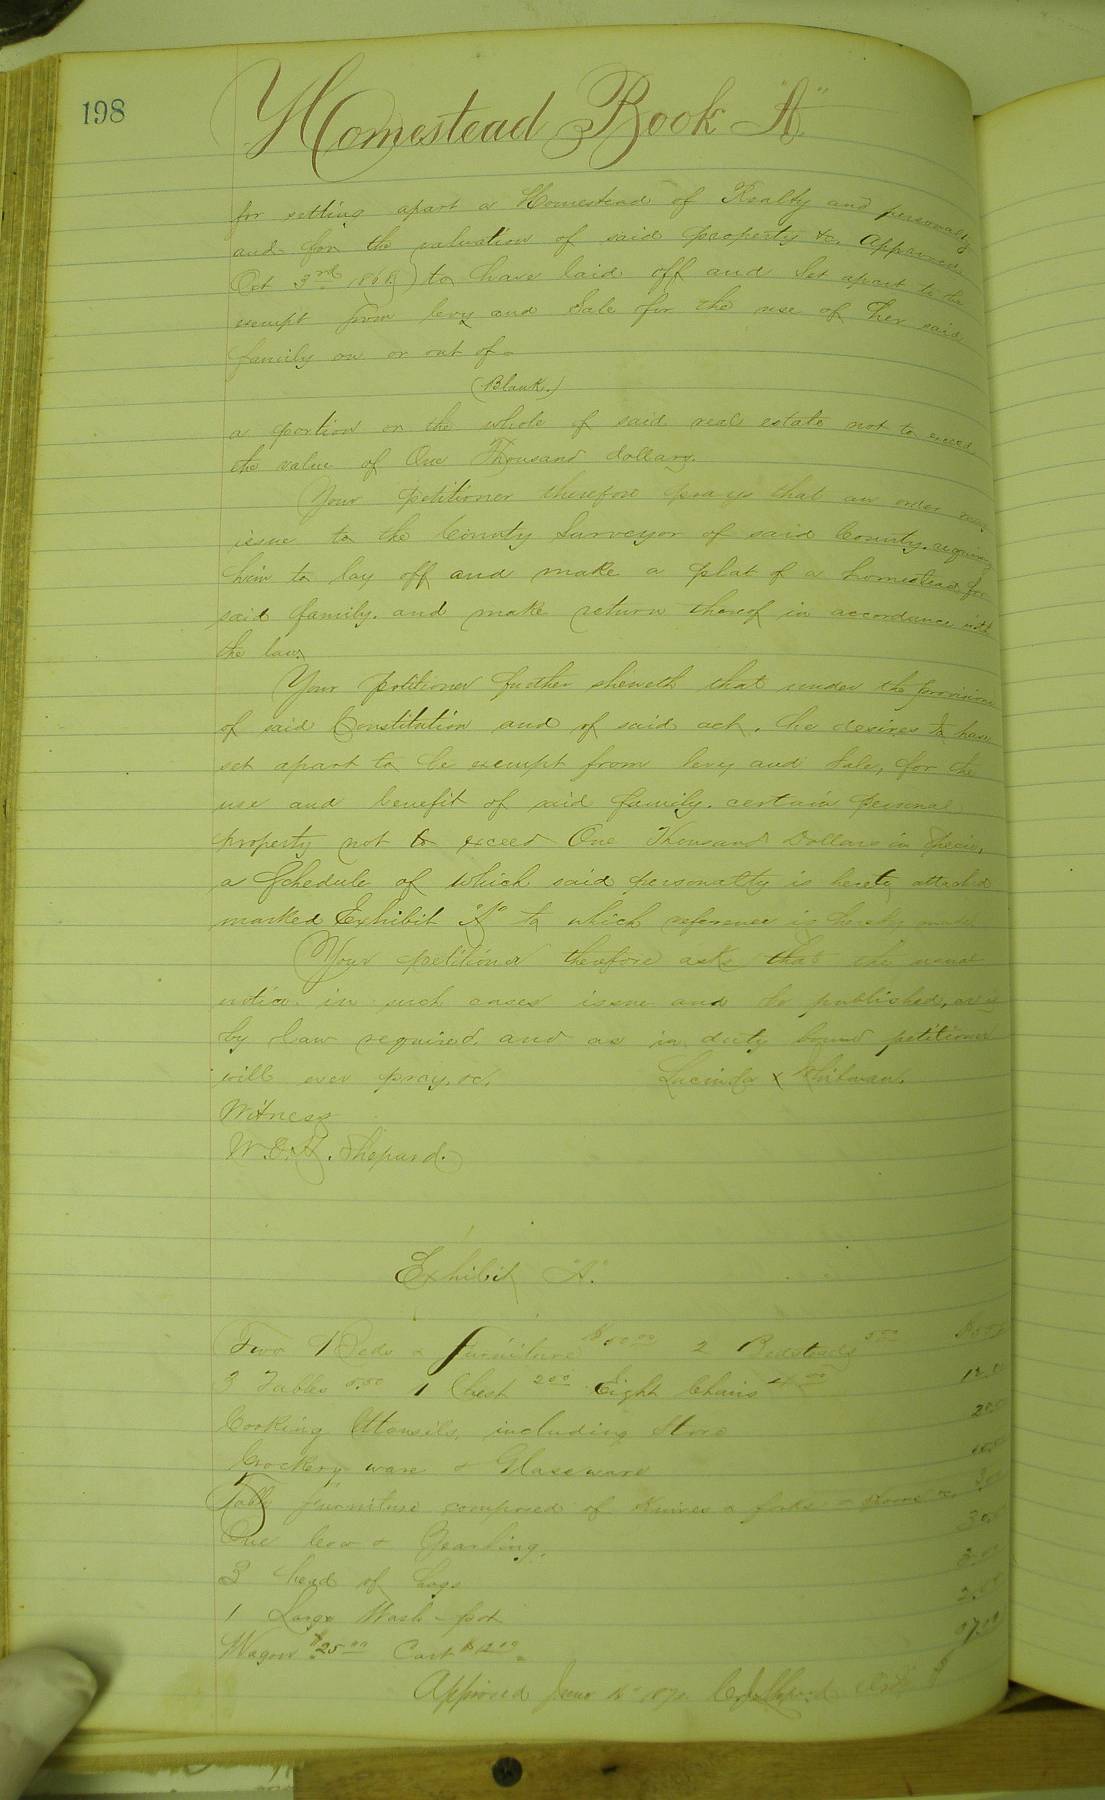 198
Homestead Book "A"
for setting apart a Homestead of Realty and personalty
and for the valuation of said property &c. Approved
Oct 3rd 1868) to have laid off and Set apart to be
exempt from levy and Sale for the use of her said
family on or out of
(Blank.)
a portion or the whole of said real estate not to exceed
the value of One Thousand dollars.
Your petitioner therefore prays that an order may
issue to the County Surveyor of said County. requiring
him to lay off and make a plat of a homestead for
said family. and make return thereof in accordance with
the law.
Your petitioner further sheweth that under the provisions
of said Constitution and of said act, he desires to have
set apart to be exempt from levy and Sale, for the
use and benefit of said family. certain personal
property not to exceed One Thousand Dollars in Specie,
a Schedule of which said personalty is hereto attached
marked Exhibit "A" to which reference is hereby made.
Your petitioner therefore asks that the usual
notice in such cases issue and be published, as is
by law required, and as in duty bound petitioner
will ever pray, &c. Lucinda x
Witness
W.D.H. Shepard.
Exhibit "A."
Two Beds & Furniture 2 Bedsteads 5.00
3 Tables 1 Chest 2.00 Eight Chairs 4.00
Cooking Utensils, including Stove
Crockery ware & Glassware
Table furniture composed of Knives & forks &
One Cow & Yearling.
3 head of hogs
1 Large Wash-pot
Wagon $25.00 Cart $12.00
Approved